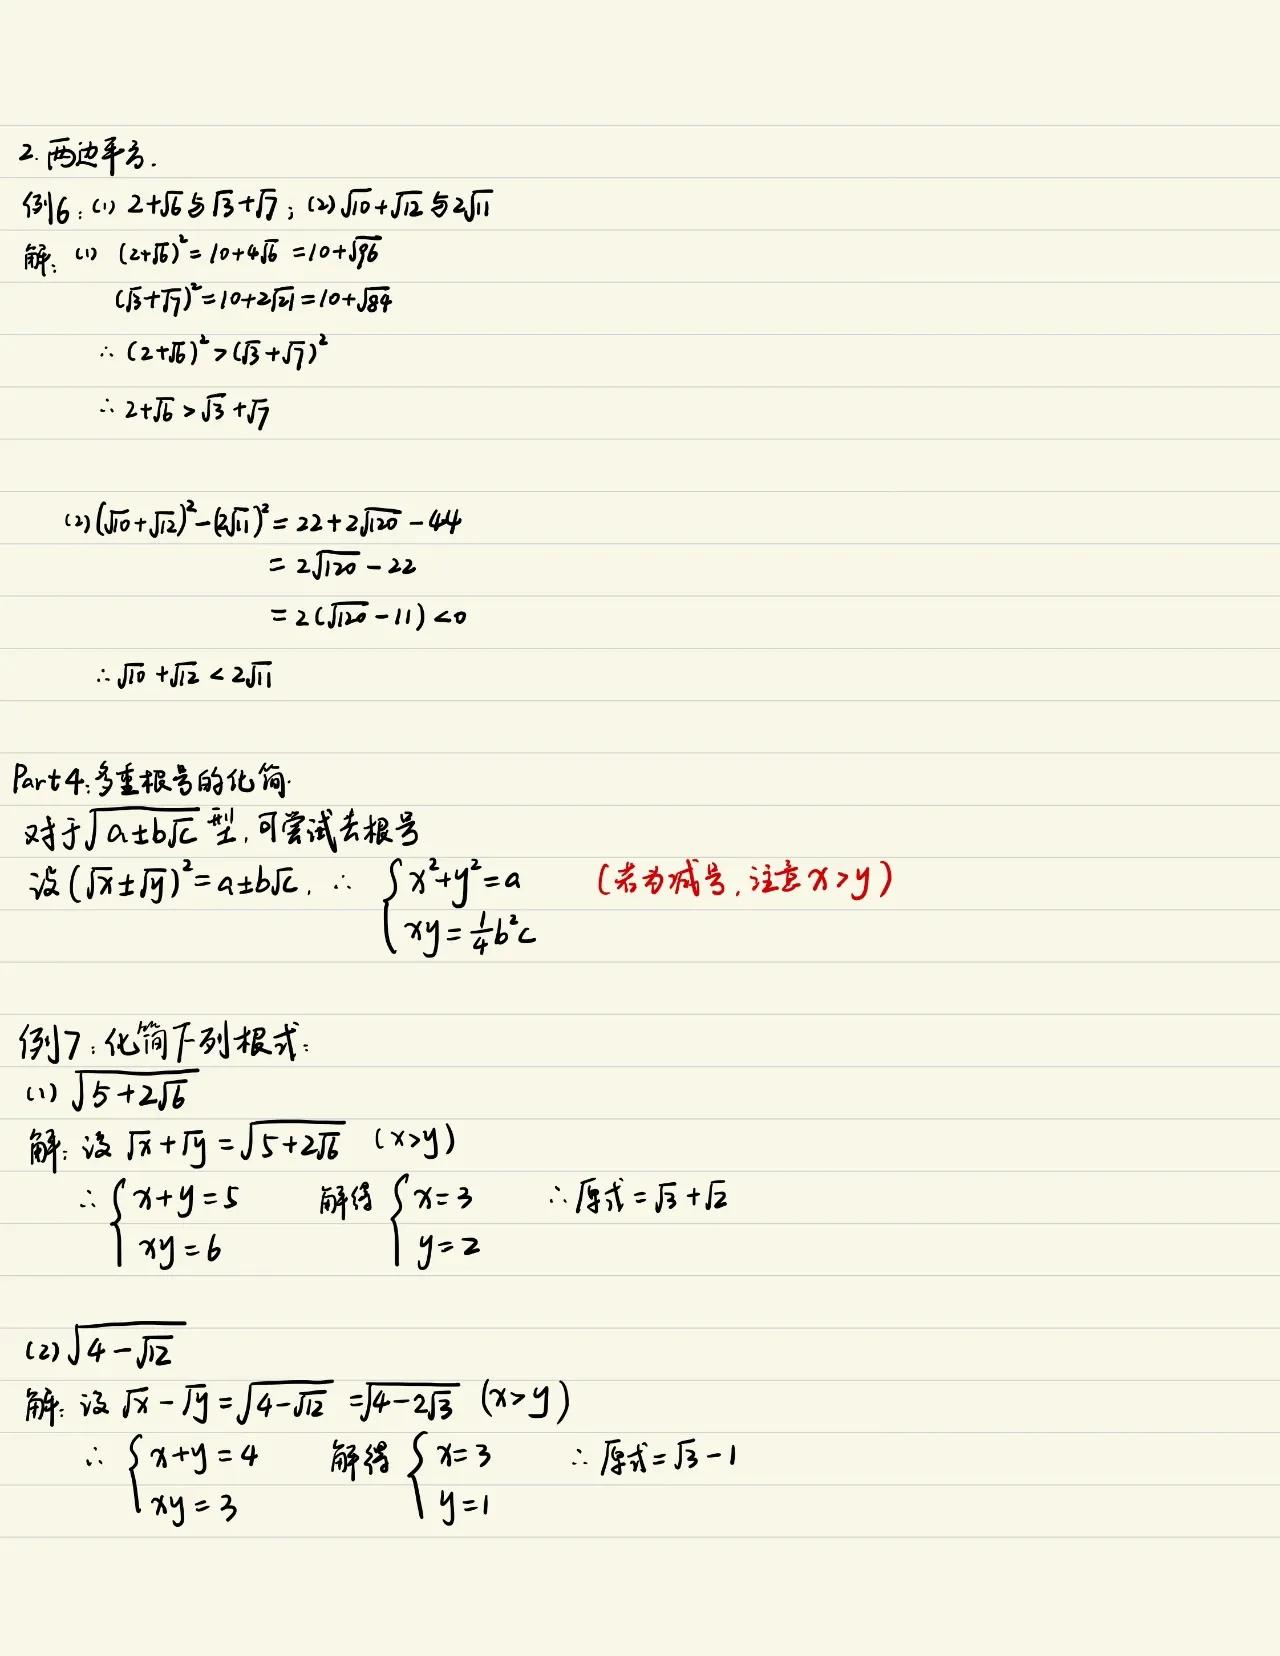 2. 两边平方.
例6: (1) 2+√6与√3+√7; (2)√10+√12与2√11
解: (1) (2+√6)²=10+4√6 =10+√96
(√3+√7)²=10+2√21=10+√84
∴ (2+√6)²>(√3+√7)²
∴ 2+√6>√3+√7
(2)(√10+√12)²-(2√11)²=22+2√120-44
= 2√120-22
=2(√120-11)<0
∴√10+√12<2√11
Part4:多重根号的化简.
对于√(a±b√c) 型,可尝试去根号
设(√x±√y)²=a±b√c, ∴ { x²+y²=a (若为减号,注意x>y)
xy=1/4b²c
例7:化简下列根式:
(1) √(5+2√6)
解: 设 √x+√y=√(5+2√6) (x>y)
∴ { x+y=5 解得 { x=3 ∴原式=√3+√2
xy=6 y=2
(2)√(4-√12)
解: 设 √x-√y=√(4-√12) =√(4-2√3) (x>y)
∴ { x+y=4 解得 { x=3 ∴原式=√3-1
xy=3 y=1